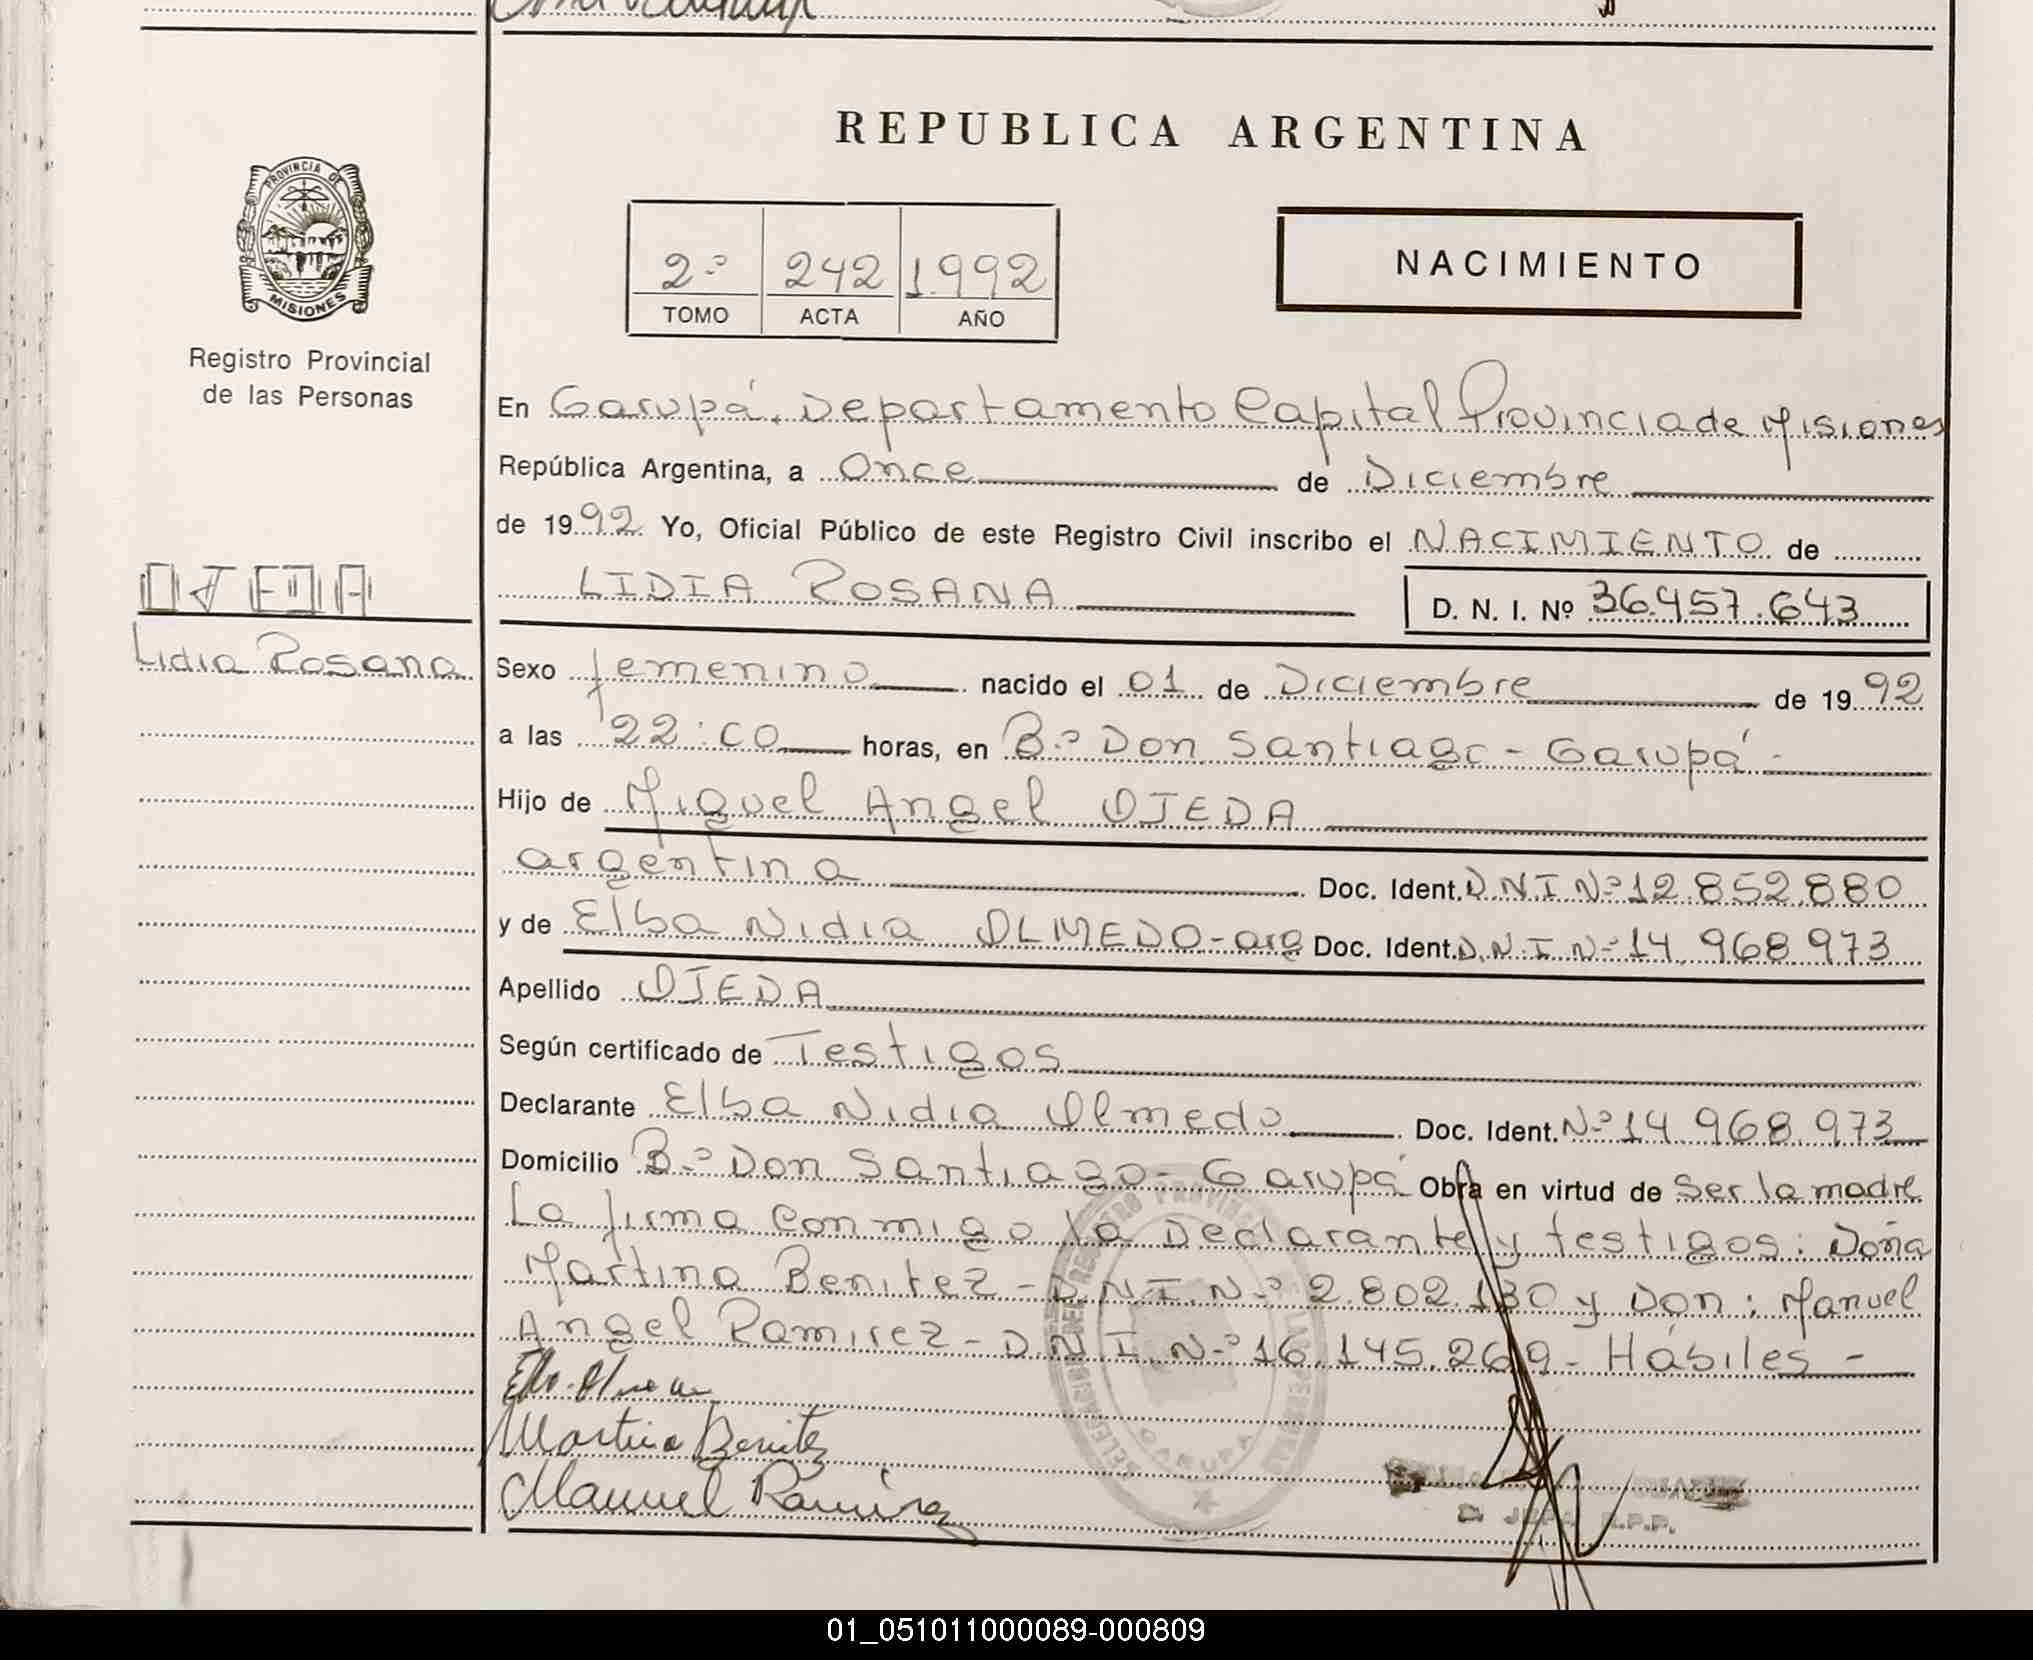 REPUBLICA ARGENTINA
PROVINCIA DE
MISIONES
Registro Provincial
de las Personas
2º 242 1992
TOMO ACTA AÑO
NACIMIENTO
En Garupá. Departamento Capital Provincia de Misiones
República Argentina, a Once de Diciembre
de 1992 Yo, Oficial Público de este Registro Civil inscribo el NACIMIENTO de
LIDIA ROSANA D. N. I. Nº 36.457.643
OJEDA
Lidia Rosana
Sexo femenino nacido el 01 de Diciembre de 1992
a las 22:00 horas, en Bº Don Santiago - Garupá -
Hijo de Miguel Angel OJEDA
argentina Doc. Ident. D.N.I Nº 12.852.880
y de Elba Nidia OLMEDO - arg Doc. Ident. D.N.I Nº 14.968.973
Apellido OJEDA
Según certificado de Testigos
Declarante Elba Nidia Olmedo Doc. Ident. Nº 14.968.973
Domicilio Bº Don Santiago - Garupá Obra en virtud de Ser la madre
La firma conmigo la Declarante y testigos: Doña
Martina Benitez - D.N.I. Nº 2.802.130 y Don: Manuel
Angel Ramirez - D.N.I. Nº 16.145.269 - Hábiles -
Martina Benitez
Manuel Ramirez
GARUPA
JEFA R.P.P.
01_051011000089-000809